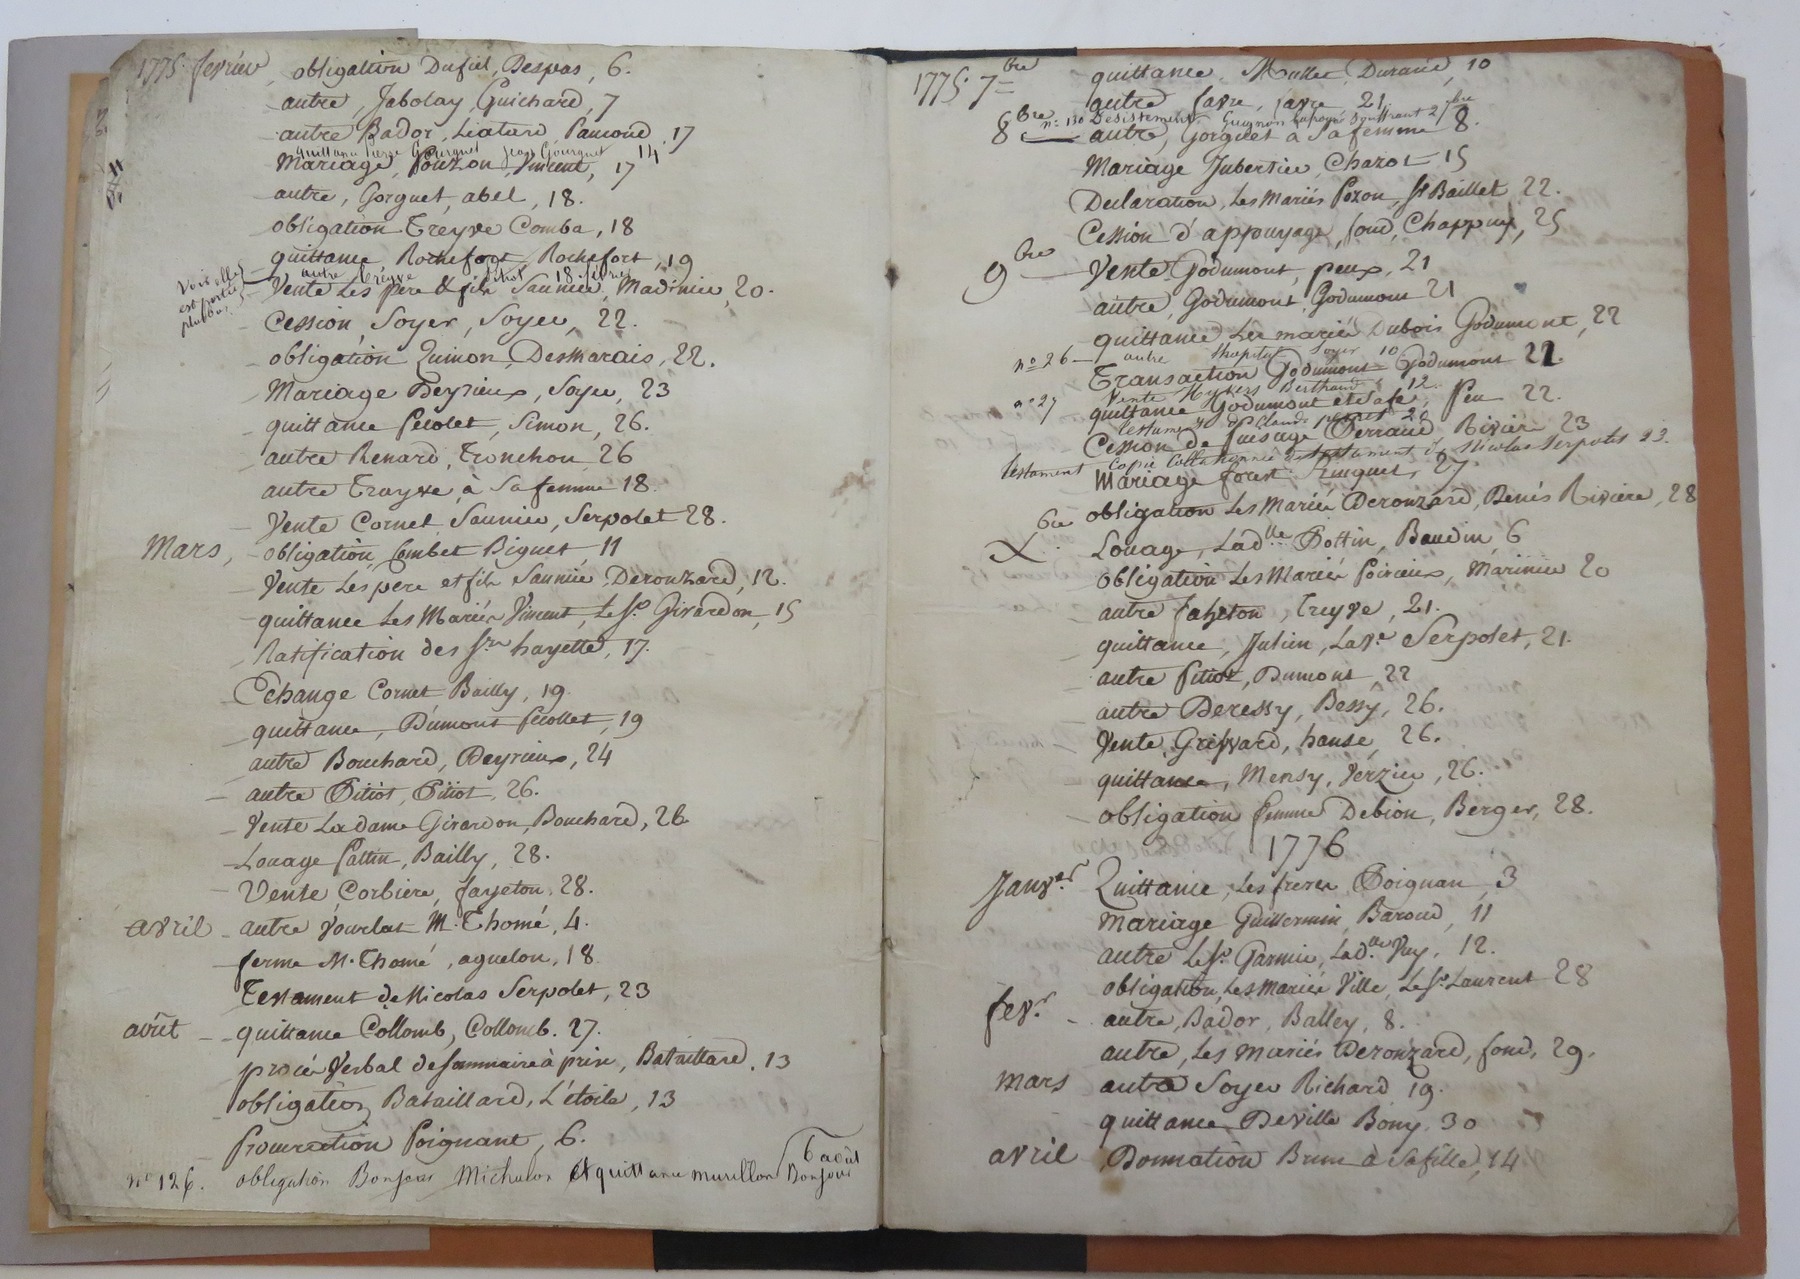 1775. fevrier, obligation Dufiel, Despras, 6.
autre, Jabolay, Guichard, 7
autre Bador, Liatard Pamond, 17
quittance Pierre Gourguet Jean Gourguet 14
Mariage, Pouzon, Vincent, 17
autre, Gorguet, abel, 18.
obligation Treyve Comba, 18
quittance Rochefort, Rochefort, 19
autre Treyve 18 fevrier
Vente Les pere & fils Saunier, Madinier, 20.
Voir elle est portée plus bas
Cession, Soyer, Soyer, 22.
obligation Quinon, Desmarais, 22.
Mariage Deyrieux, Soyer, 23
quittance Pecolet, Simon, 26.
autre Renard, Tronchon, 26
autre Trayve, à Sa femme 18.
Vente Cornet, Saunier, Serpolet 28.
Mars, obligation, Combet Biguet 11
Vente Les pere et fils Saunier, Deronzard, 12.
quittance Les Mariés Vincent, Le Sr. Girardon, 15
Ratification des Srs hayette, 17.
Echange Cornet Bailly, 19.
quittance, Dumont Pecollet, 19
autre Bouchard, Deyrieux, 24
autre Pitiot, Pitiot, 26.
Vente La dame Girardon, Bouchard, 26
Louage Pattin, Bailly, 28.
Vente, Corbiere, fayeton, 28.
avril autre Vourlat M. Thomé, 4.
ferme M. Thomé, aguelon, 18
Testament de Nicolas Serpolet, 23
août quittance Collomb, Collomb. 27.
procès Verbal de Sommaire à prise, Bataillard, 13
obligation Bataillard, L'étoile, 13
Procuration Poignant, 6.
no 126. obligation Bonjour Michalon et quittance murillon Bonjour 6 août
1775. 7bre quittance, Mullet, Durand, 10
autre favre, favre, 21
n° 130 Desistement Guignon 27bre
8bre autre, Gorguet à Sa femme 8.
Mariage Jubertier, Chazot 15
Declaration, Les Mariés Pozon, Sr Baillet, 22.
Cession d'appuyage, fond, Chappuy, 25
9bre Vente Godumont, peux, 21
autre, Godumont, Godumont 21
quittance Les mariés Dubois Godumont, 22
n° 26 autre Soyer 10
Transaction Godumont Godumont 22.
n° 27 Vente Berthaud 12.
quittance Godumont et Sa fe, Peu 22.
testament de Claude 20
Cession de Ferraud Rivier 23
testament Copie Collationnée du testament de Nicolas Serpolet 23.
Mariage forest Huguet, 27.
obligation Les Mariés Deronzard, Denis Riviere, 28
Xbre Louage, Ladlle Dottin, Baudin, 6
obligation Les Mariés Poirieux, Marinier 20
autre fayeton, Treyve, 21.
quittance, Julien, La Ve Serpolet, 21.
autre Pitiot, Dumont, 22
autre Deressy, Bessy, 26.
Vente, Grissard, hanse, 26.
quittance, Mensy, Verzier, 26.
obligation femme Debion, Berger, 28.
1776
Janver. Quittance, Les freres Poignan, 3
Mariage Guillermin, Baroud, 11
autre Le Sr. Garnier, Lad.lle Puy, 12.
obligation, Les Mariés Ville, Le Sr. Laurent 28
fevr. autre, Bador, Balley, 8.
autre, Les Mariés Deronzard, fond, 29.
mars autre Soyer Richard 19.
quittance Deville Bony, 30
avril Donnation Brun à Sa fille, 14